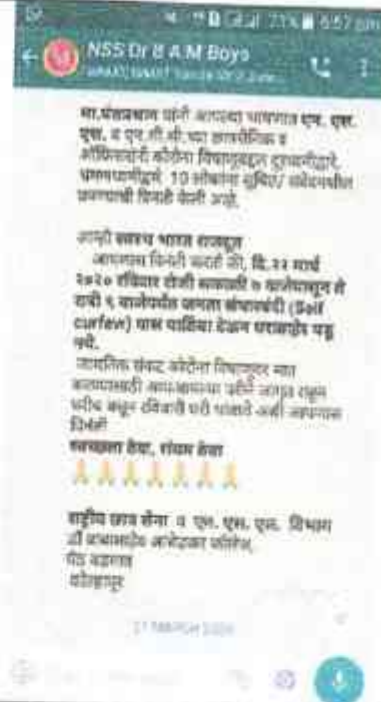 71% 6:57 pm
NSS Dr B A M Boys
मा.पंतप्रधान यांनी आपल्या भाषणात एन. एस.
एस. व एन.सी.सी.च्या छात्रसैनिक व
कोरोना विषाणूबद्दल दूरध्वनीद्वारे,
10 लोकांना सूचित/
विनंती केली आहे.
आम्ही स्वच्छ भारत राजदूत
आपणास विनंती करतो की, दि.२२ मार्च
२०२० रविवार रोजी सकाळी ७ वाजेपासून ते
रात्री ९ वाजेपर्यंत जनता संचारबंदी (Self
curfew) यास पाठिंबा देऊन घराबाहेर पडू
नये.
जागतिक संकट कोरोना विषाणूवर मात
करण्यासाठी आपआपल्या परीने जागृत राहून
घरीच बसून रविवारी घरी थांबावे अशी आपणास
विनंती
स्वच्छता सेवा, संयम सेवा
🙏🙏🙏🙏🙏🙏🙏
राष्ट्रीय छात्र सेना व एन. एस. एस. विभाग
डॉ बाबासाहेब आंबेडकर कॉलेज,
पेठ वडगाव
कोल्हापूर
21 MARCH 2020